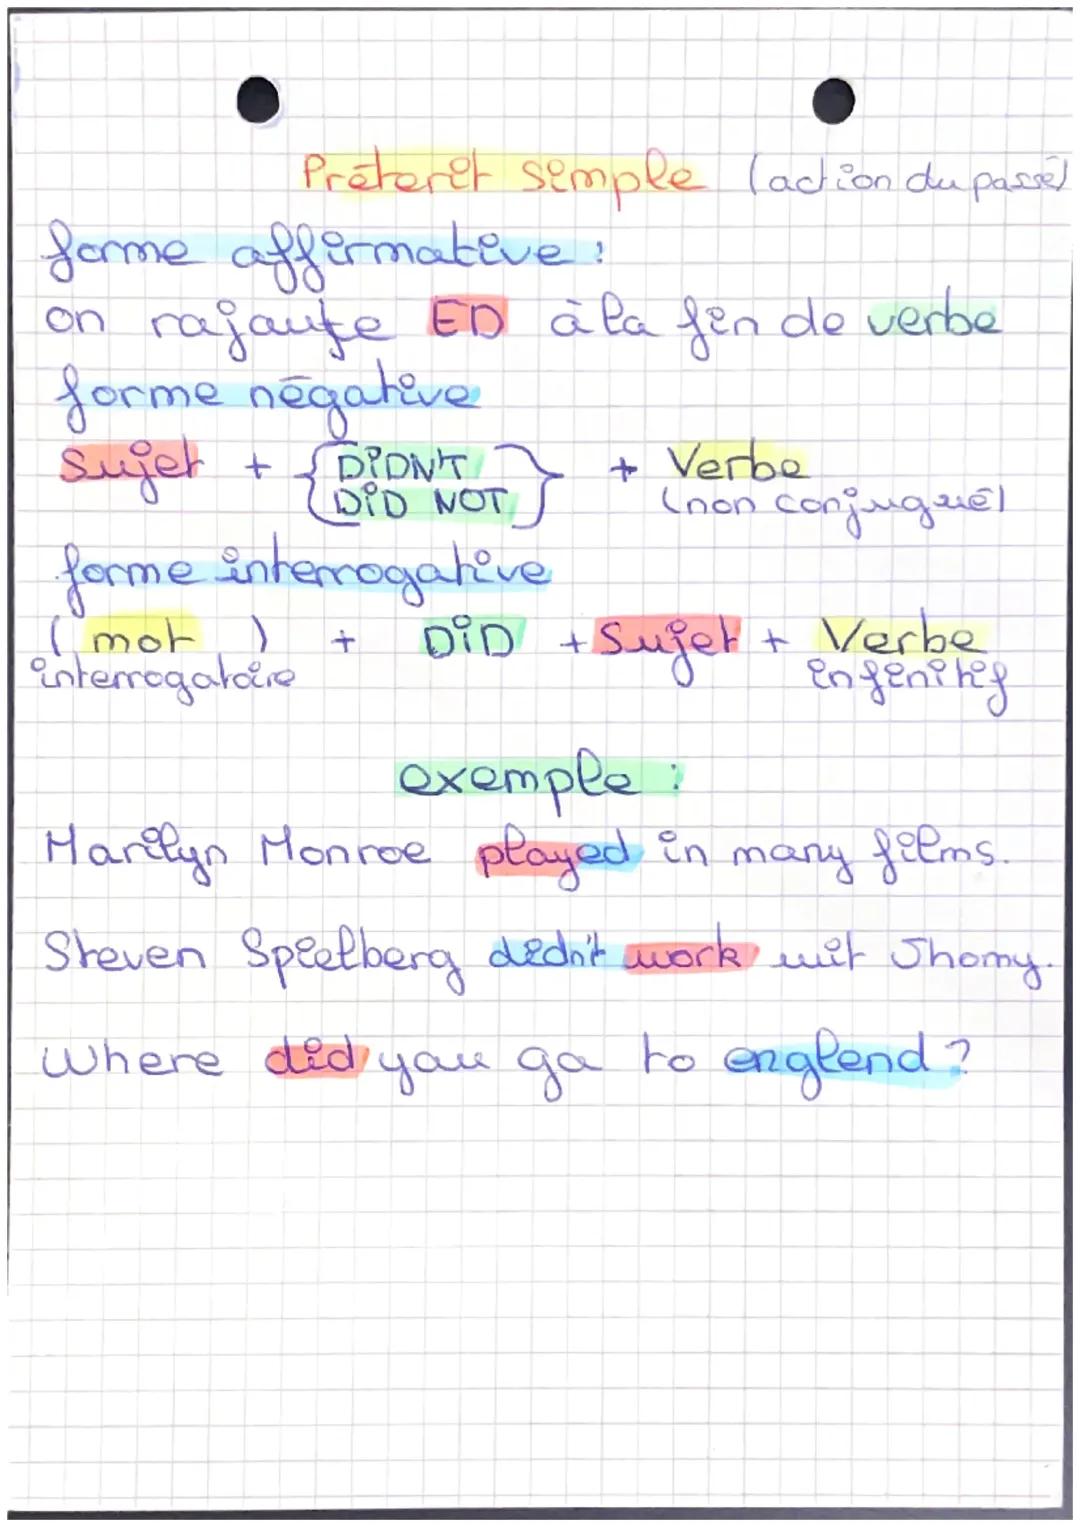 Préterit simple (action du passé)
forme affirmative :
on rajoute ED à la fin de verbe
forme négative
Sujet + { DiDN'T
DiD NOT } + Verbe
(non conjugué)
forme interrogative
( mot ) + DiD + Sujet + Verbe
interrogatoire infinitif
exemple :
Marilyn Monroe played in many films.
Steven Spielberg didn't work wit Jhomy.
Where did you go to englend ?